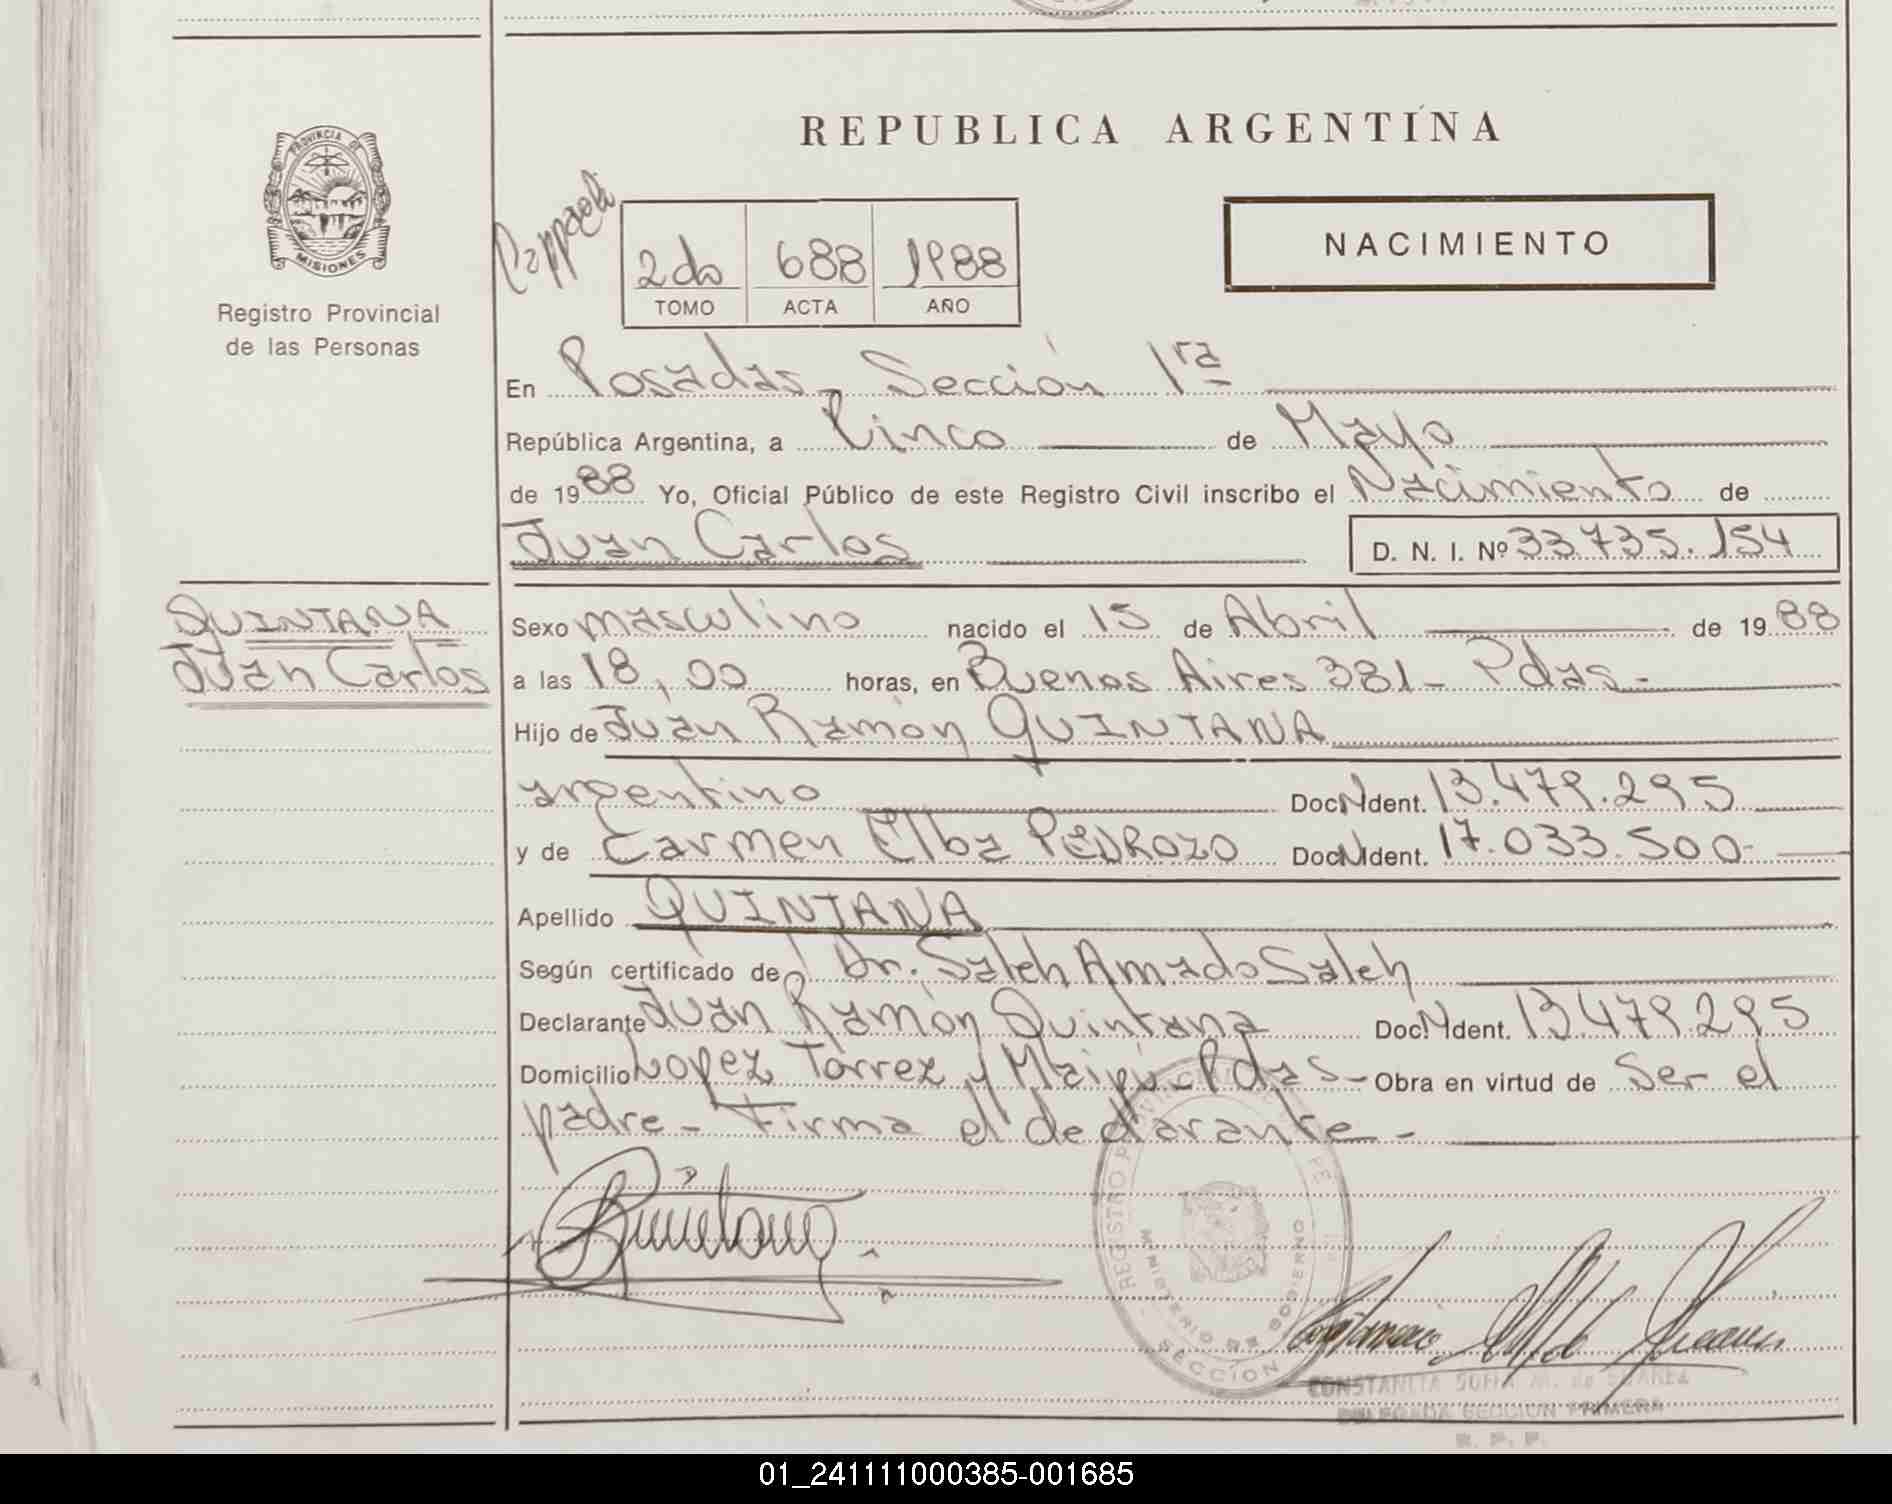 REPUBLICA ARGENTINA
PROVINCIA DE
MISIONES
Registro Provincial
de las Personas
2do 688 1988
TOMO ACTA AÑO
NACIMIENTO
En Posadas, Sección 1ra
República Argentina, a Cinco de Mayo
de 1988 Yo, Oficial Público de este Registro Civil inscribo el Nacimiento de
Juan Carlos D. N. I. Nº 33735.154
QUINTANA
Juan Carlos
Sexo masculino nacido el 15 de Abril de 1988
a las 18,00 horas, en Buenos Aires 381 - Pdas -
Hijo de Juan Ramón QUINTANA
argentino Doc. N Ident. 13.479.295
y de Carmen Elba PEDROZO Doc. N Ident. 17.033.500-
Apellido QUINTANA
Según certificado del Dr. Saleh Amado Saleh
Declarante Juan Ramón Quintana Doc. N Ident. 13.479.295
Domicilio Lopez Torrez y Maipú - Pdas - Obra en virtud de Ser el
padre - Firma el declarante -
REGISTRO PROVINCIAL DE
MINISTERIO DE GOBIERNO
SECCION
SOFIA M. de SUAREZ
DELEGADA SECCION PRIMERA
R. P. P.
01_241111000385-001685